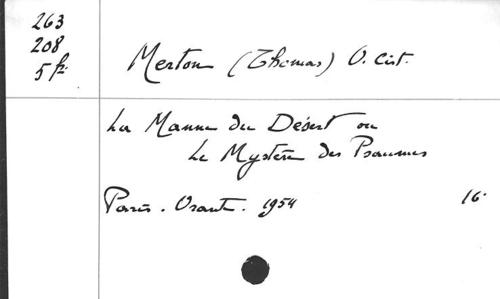 263
208
5 fr.
Merton (Thomas) O. Cist.
La Manne du Désert ou
Le Mystère des Psaumes
Paris. Orante. 1954
16°